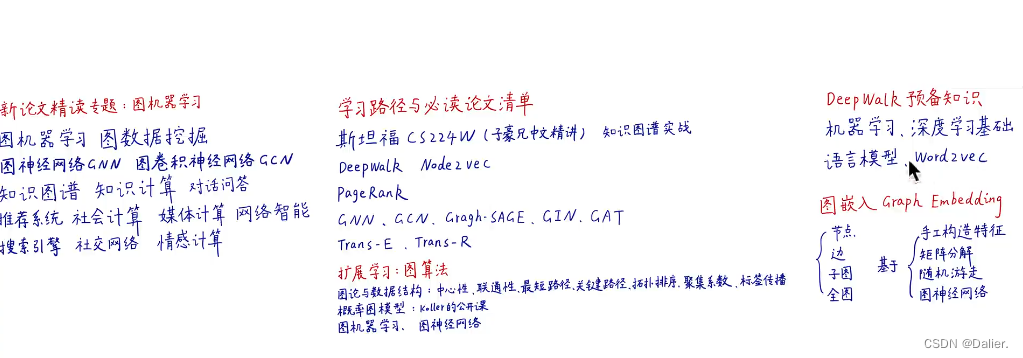 新论文精读专题：图机器学习
图机器学习 图数据挖掘
图神经网络GNN 图卷积神经网络GCN
知识图谱 知识计算 对话问答
推荐系统 社会计算 媒体计算 网络智能
搜索引擎 社交网络 情感计算
学习路径与必读论文清单
斯坦福CS224W(子豪兄中文精讲) 知识图谱实战
Deepwalk Node2vec
PageRank
GNN、GCN、Gragh-SAGE、GIN、GAT
Trans-E、Trans-R
扩展学习：图算法
图论与数据结构：中心性、联通性、最短路径、关键路径、拓扑排序、聚集系数、标签传播
概率图模型：Koller的公开课
图机器学习、图神经网络
DeepWalk 预备知识
机器学习、深度学习基础
语言模型、Word2vec
图嵌入 Graph Embedding
节点
边
子图
全图
基于
手工构造特征
矩阵分解
随机游走
图神经网络
CSDN @Dalier.